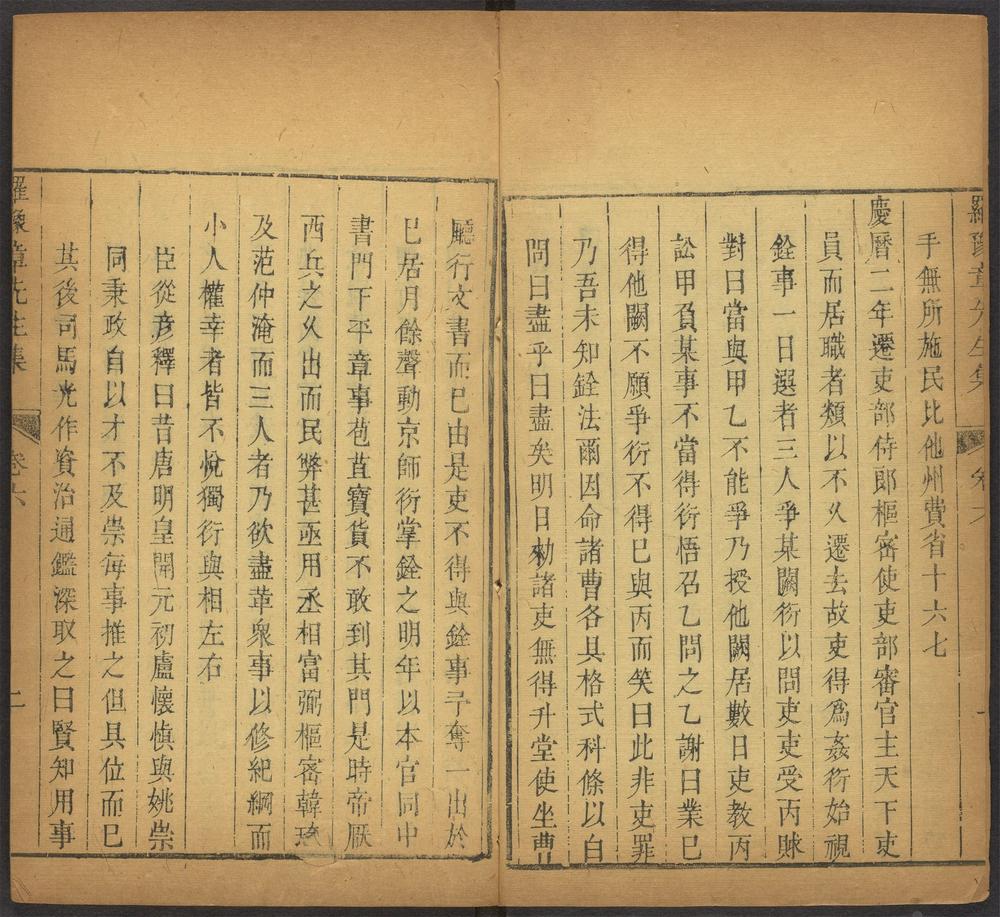 羅豫章先生集 卷六 一
手無所施民比他州費省十六七
慶曆二年遷吏部侍郎樞密使吏部審官主天下吏
員而居職者類以不乆遷去故吏得爲姦衍始視
銓事一日選者三人爭某闕衍以問吏吏受丙賕
對曰當與甲乙不能爭乃授他闕居數日吏教丙
訟甲負某事不當得衍悟召乙問之乙謝曰業已
得他闕不願爭衍不得已與丙而笑曰此非吏罪
乃吾未知銓法爾因命諸曹各具格式科條以白
問曰盡乎曰盡矣明日勑諸吏無得升堂使坐曹
聽行文書而已由是吏不得與銓事予奪一出於
已居月餘聲動京師衍掌銓之明年以本官同中
書門下平章事苞苴寶貨不敢到其門是時帝厭
西兵之乆出而民弊甚亟用丞相富弼樞密韓琦
及范仲淹而三人者乃欲盡革衆事以修紀綱而
小人權幸者皆不悅獨衍與相左右
臣從彦釋曰昔唐明皇開元初盧懷慎與姚崇
同秉政自以才不及崇每事推之但具位而已
其後司馬光作資治通鑑深取之曰賢知用事
羅豫章先生集 卷六 二